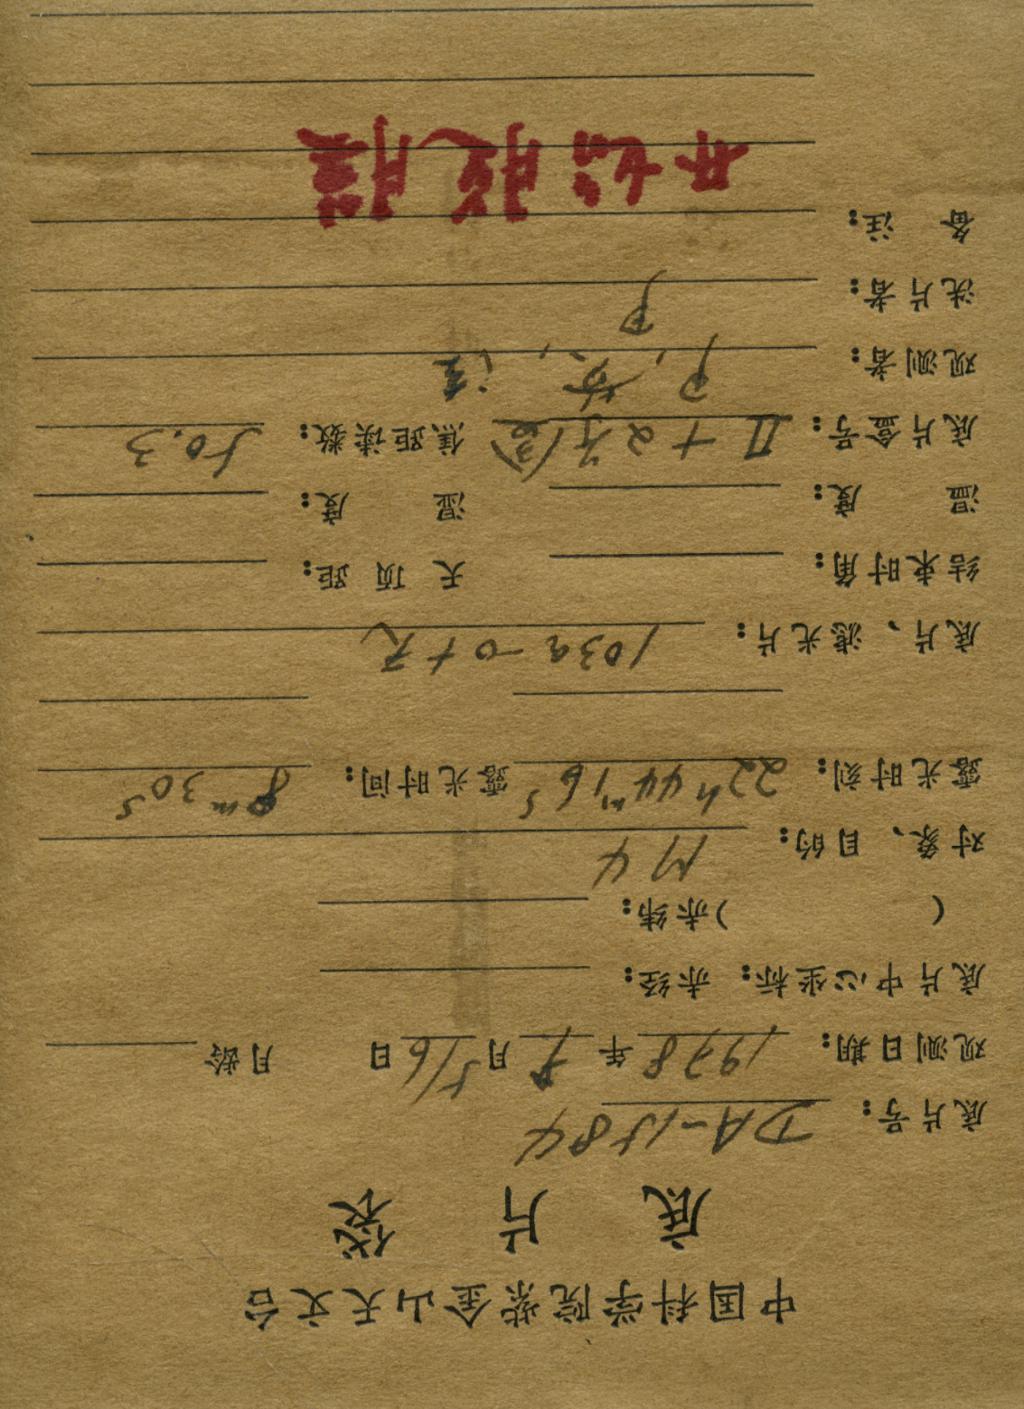 中国科学院紫金山天文台
底片袋
底片号: DA-1584
观测日期: 1978年 月5/6日 月龄
底片中心坐标: 赤经:
( )赤纬:
对象、目的: M4
露光时刻: 22h44m16s 露光时间: 8m30s
底片、滤光片: 103a-O+无
结束时角: 天顶距:
温度: 湿度:
底片盒号: II+2 焦距读数: 50.3
观测者:
洗片者:
备注:
开始脱膜